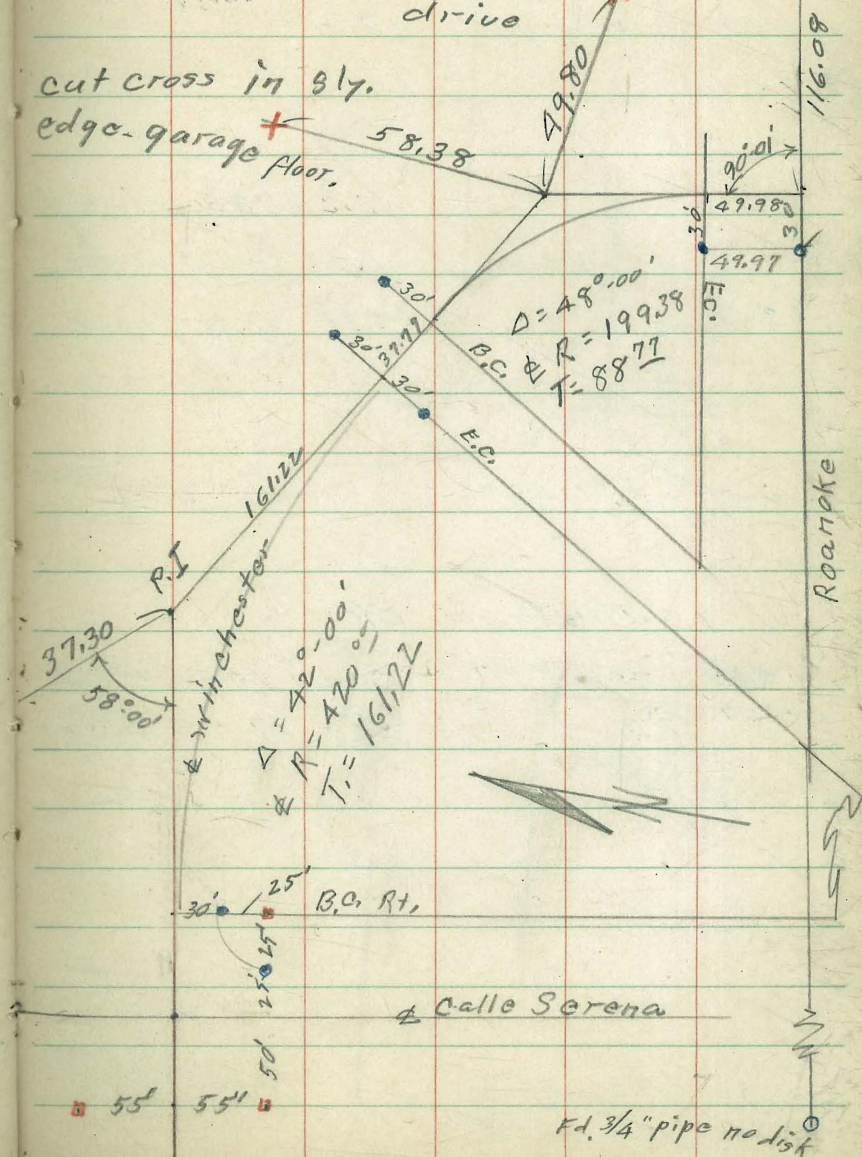 drive
cut cross in sly.
edge-garage
floor.
58.38
49.80
116.08
90°01'
49.98
30'
30'
49.97
E.C.
30'
37.79
30'
30'
B.C.
Δ = 48°-00'
℄ R = 199.38
T = 88.77
E.C.
161.22
P.I
37.30
58°00'
℄ Winchester
Δ = 42°-00'
℄ R = 420.00
T. = 161.22
Roanoke
30'
25'
B.C. Rt.
25'
25'
℄ Calle Serena
50'
55'
55"
Fd. 3/4" pipe no disk